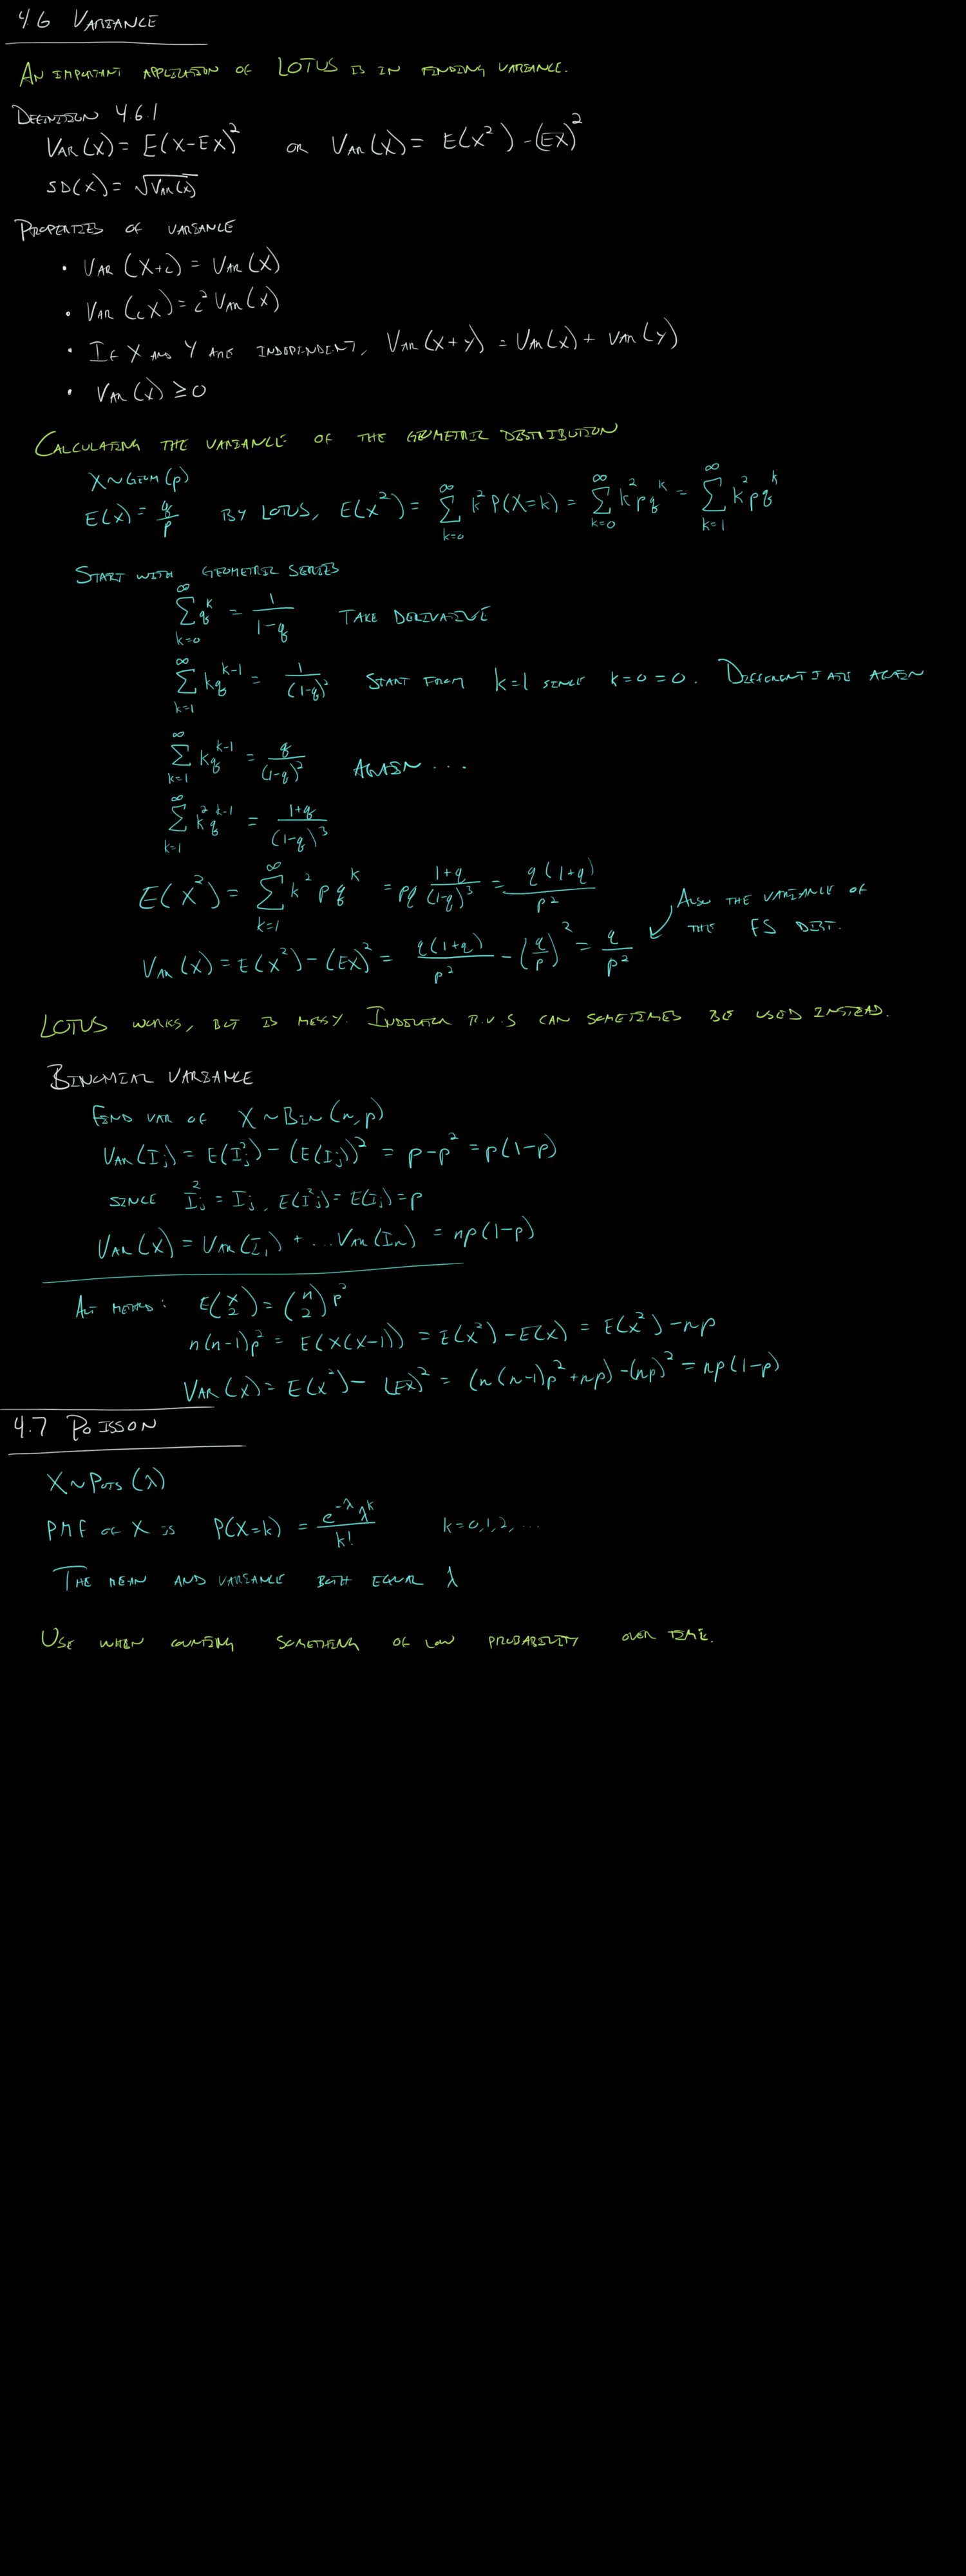 4.6 VARIANCE
AN IMPORTANT APPLICATION OF LOTUS IS IN FINDING VARIANCE.
DEFINITION 4.6.1
VAR(X) = E(X-EX)² OR VAR(X) = E(X²) - (EX)²
SD(X) = √VAR(X)
PROPERTIES OF VARIANCE
• VAR(X+c) = VAR(X)
• VAR(cX) = c² VAR(X)
• IF X AND Y ARE INDEPENDENT, VAR(X+Y) = VAR(X) + VAR(Y)
• VAR(X) ≥ 0
CALCULATING THE VARIANCE OF THE GEOMETRIC DISTRIBUTION
X ~ GEOM(p)
E(X) = q/p BY LOTUS, E(X²) = ∑_{k=0}^{∞} k² P(X=k) = ∑_{k=0}^{∞} k² p q^k = ∑_{k=1}^{∞} k² p q^k
START WITH GEOMETRIC SERIES
∑_{k=0}^{∞} q^k = 1/(1-q) TAKE DERIVATIVE
∑_{k=1}^{∞} k q^{k-1} = 1/(1-q)² START FROM k=1 SINCE k=0=0. DIFFERENTIATE AGAIN
∑_{k=1}^{∞} k q^{k-1} = q/(1-q)² AGAIN ...
∑_{k=1}^{∞} k² q^{k-1} = (1+q)/(1-q)³
E(X²) = ∑_{k=1}^{∞} k² p q^k = pq (1+q)/(1-q)³ = q(1+q)/p²
ALSO THE VARIANCE OF THE FS DIST.
VAR(X) = E(X²) - (EX)² = q(1+q)/p² - (q/p)² = q/p²
LOTUS WORKS, BUT IS MESSY. INDICATOR R.V.S CAN SOMETIMES BE USED INSTEAD.
BINOMIAL VARIANCE
FIND VAR OF X ~ BIN(n,p)
VAR(Ij) = E(Ij²) - (E(Ij))² = p - p² = p(1-p)
SINCE Ij² = Ij, E(I²j) = E(Ij) = p
VAR(X) = VAR(I₁) + ... VAR(In) = np(1-p)
ALT METHOD: E(X choose 2) = (n choose 2) p²
n(n-1)p² = E(X(X-1)) = E(X²) - E(X) = E(X²) - np
VAR(X) = E(X²) - (EX)² = (n(n-1)p² + np) - (np)² = np(1-p)
4.7 POISSON
X ~ POIS(λ)
PMF OF X IS P(X=k) = e^{-λ} λ^k / k! k=0,1,2,...
THE MEAN AND VARIANCE BOTH EQUAL λ
USE WHEN COUNTING SOMETHING OF LOW PROBABILITY OVER TIME.